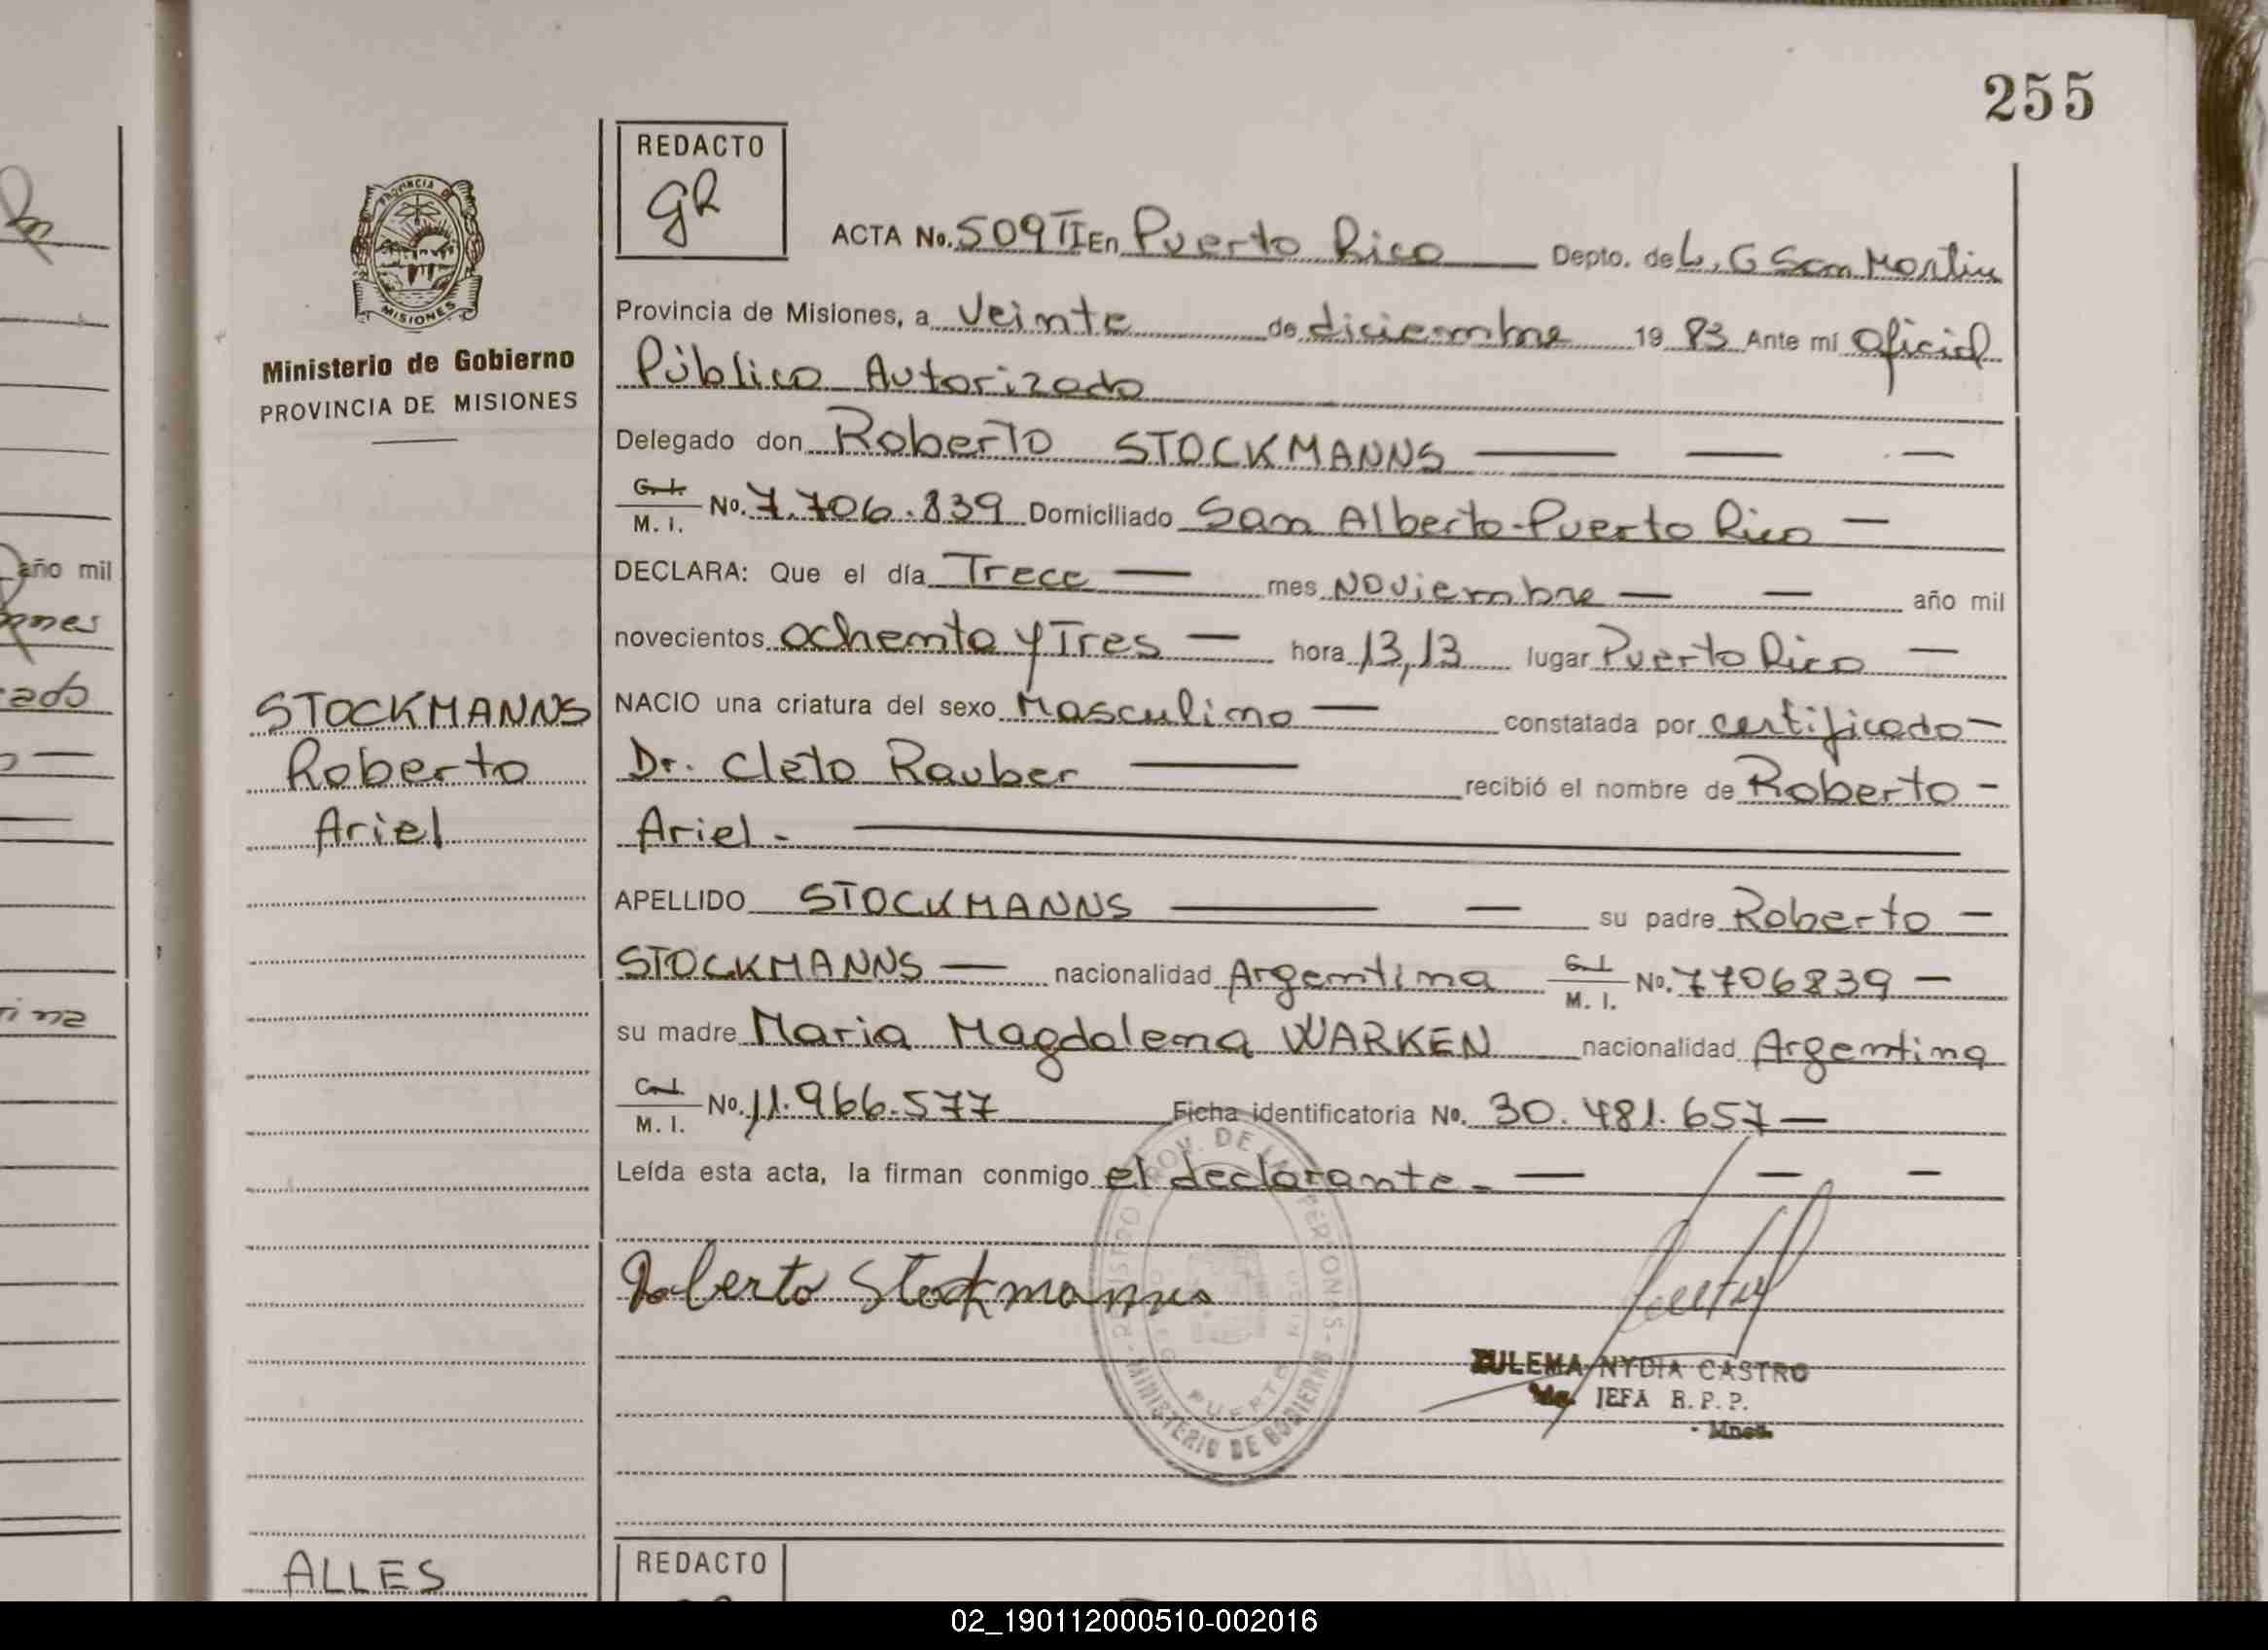 255
REDACTO
gR
PROVINCIA DE
MISIONES
Ministerio de Gobierno
PROVINCIA DE MISIONES
ACTA No. 509 II En Puerto Rico — Depto. de L. G San Martin
Provincia de Misiones, a Veinte de diciembre 19 83 Ante mí Oficial
Público Autorizado
Delegado don Roberto STOCKMANNS — — —
C. I.
M. I. No. 7.706.839 Domiciliado San Alberto-Puerto Rico —
DECLARA: Que el día Trece — mes Noviembre — — año mil
novecientos ochenta y Tres — hora 13,13 lugar Puerto Rico —
NACIO una criatura del sexo Masculino — constatada por certificado —
Dr. Cleto Rauber — recibió el nombre de Roberto —
Ariel. —
APELLIDO STOCKMANNS — — su padre Roberto —
STOCKMANNS — nacionalidad Argentina C. I.
M. I. No. 7706839 —
su madre Maria Magdalena WARKEN nacionalidad Argentina
C. I.
M. I. No. 11.966.577 Ficha identificatoria No. 30.481.657 —
Leída esta acta, la firman conmigo el declarante. — — —
Roberto Stockmanns
ZULEMA NYDIA CASTRO
JEFA R. P. P.
Mnes.
MINISTERIO DE GOBIERNO
STOCKMANNS
Roberto
Ariel
ALLES
REDACTO
año mil
02_190112000510-002016